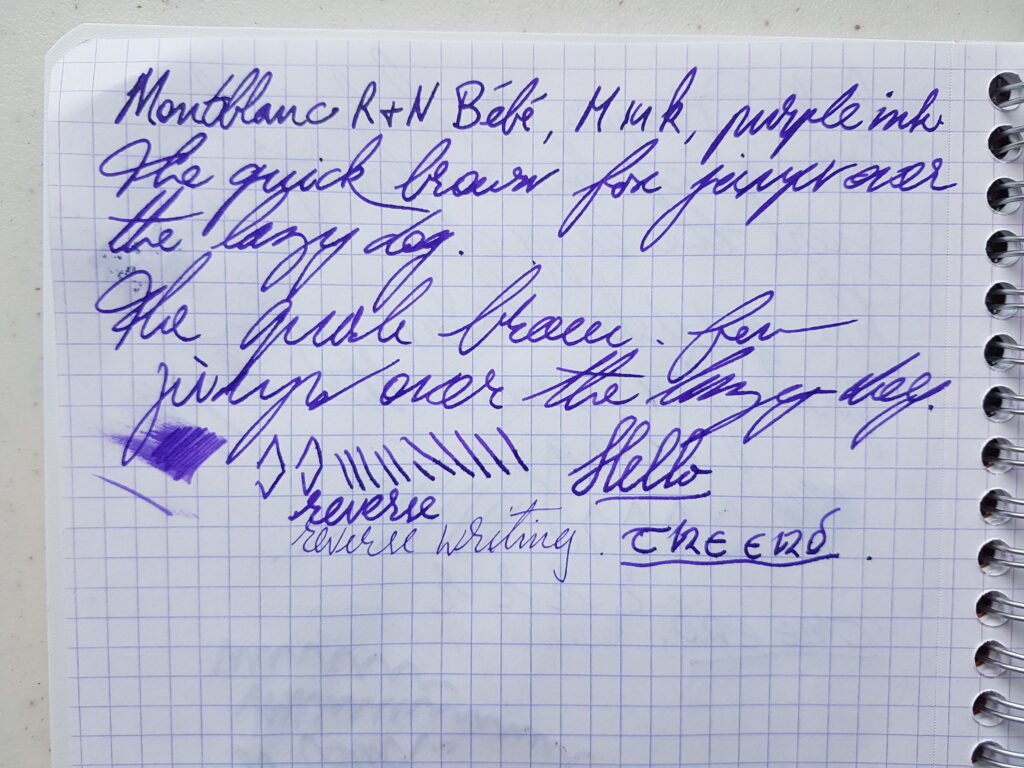 Montblanc R+N Bébé, M ink, purple ink
The quick brown fox jumps over
the lazy dog.
The quick brown fox
jumps over the lazy dog.
Hello
reverse
reverse writing. THE END.